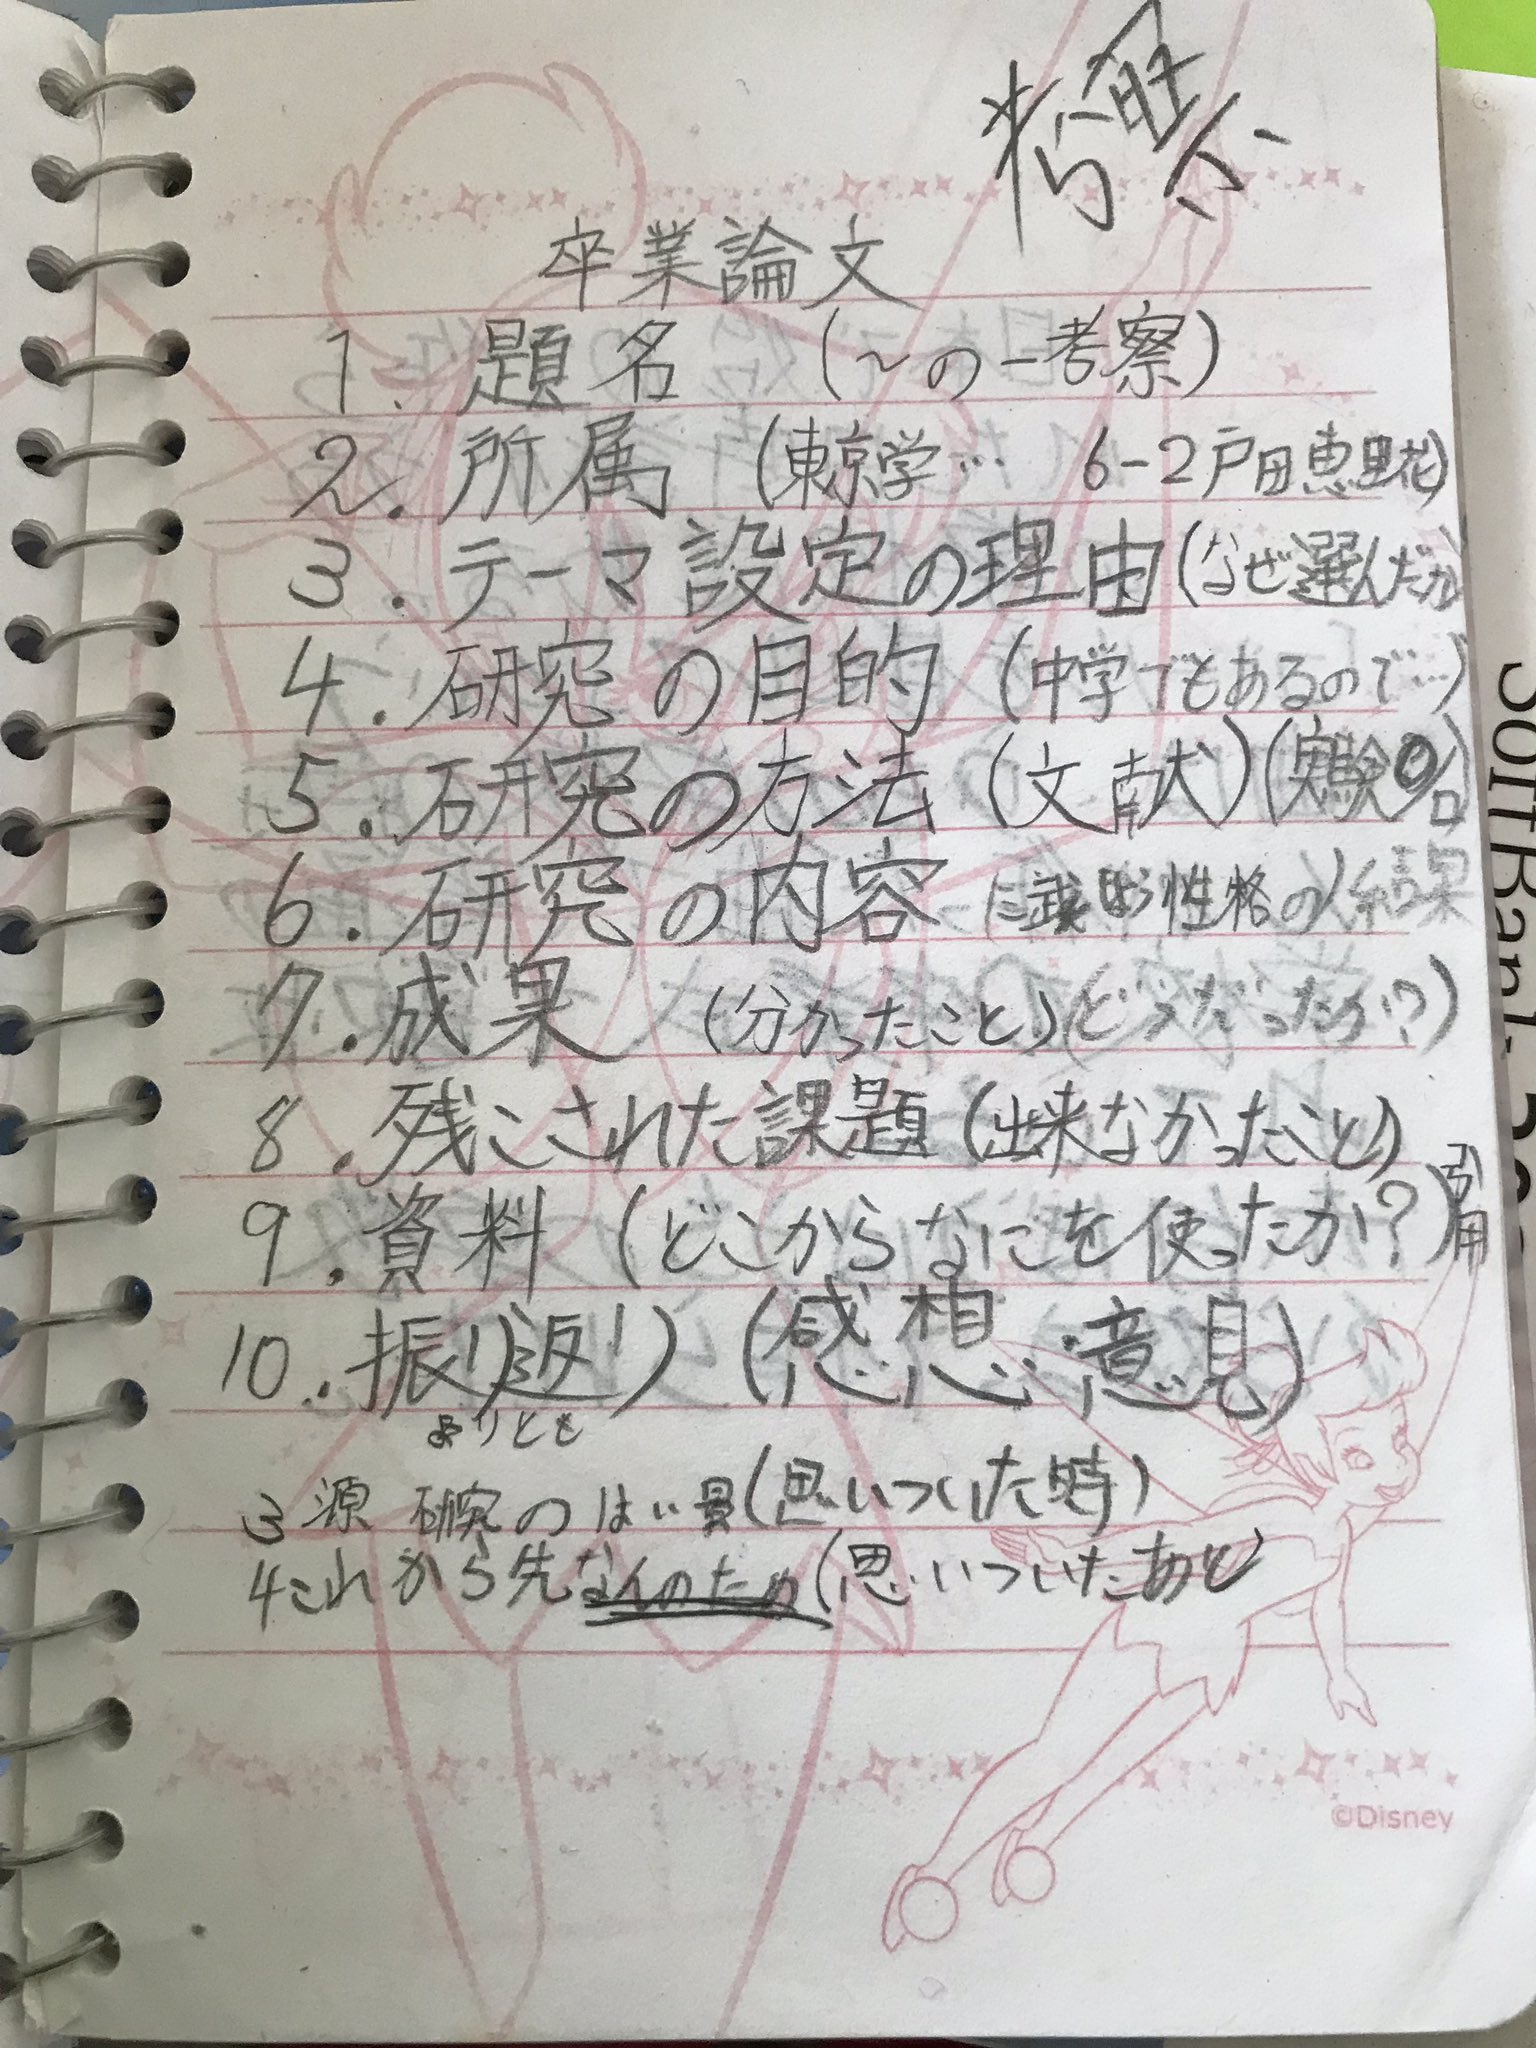 卒業論文
1. 題名 (〜の一考察)
2. 所属 (東京学… 6-2戸田恵里花)
3. テーマ設定の理由(なぜ選んだか)
4. 研究の目的 (中学でもあるので…)
5. 研究の方法 (文献)(実験
6. 研究の内容 性格の 結果
7. 成果 (分かったこと)(どうだったか?)
8. 残こされた課題 (出来なかったこと)
9. 資料 (どこからなにを使ったか?)引用
10. 振り返り (感想・意見)
よりとも
3 源 研究のはい景(思いついた時)
4 これから先なんのため(思いついたあと)
©Disney
SoftBank